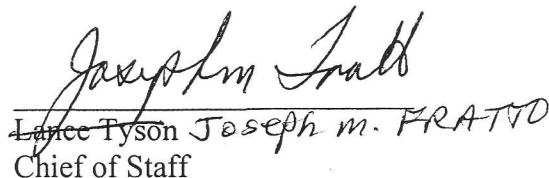 Joseph M Fratt
Lance Tyson Joseph M. FRATTO
Chief of Staff